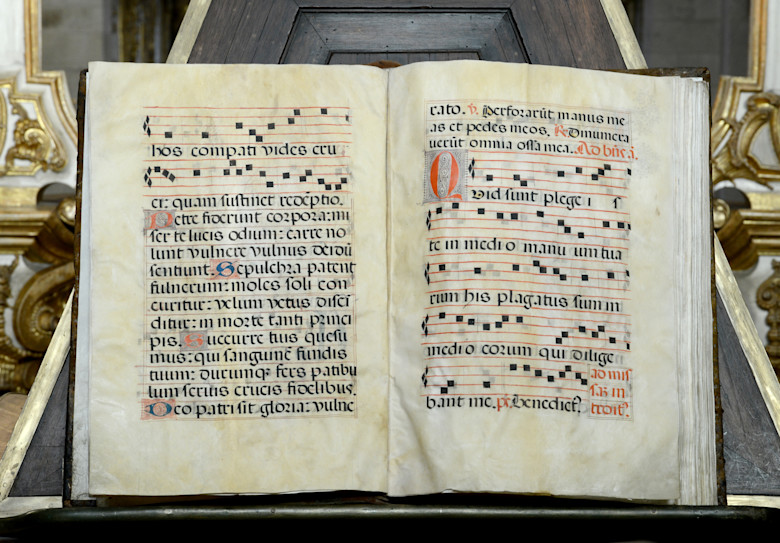 hos compati vides cru
er: quam sustinet redēptio.
Petre fiderunt corpora: mi
ser te lucis odium: carte no
lunt vulnere vulnus deidū
sentiunt. Sepulchra patent
fulnerum: moles soli con
curitur: velum vetus disci
ditur: in morte tanti princi
pis. Succurre tuis quesu
mus: qui sanguinē fundis
tuum: durumq; fers patibu
lum seruis crucis fidelibus.
Deo patri sit gloria: vulne
cato. v. Perforarūt manus me
as et pedes meos. R. Dinumera
uerūt omnia ossa mea. Ad bn̄c. a.
Quid sunt plege i s
te in medi o manu um tua
rum his plagatus sum in
medi o eorum qui dilige
bant me. ps. Benedict9
ad mis
sa3 in
troit9.